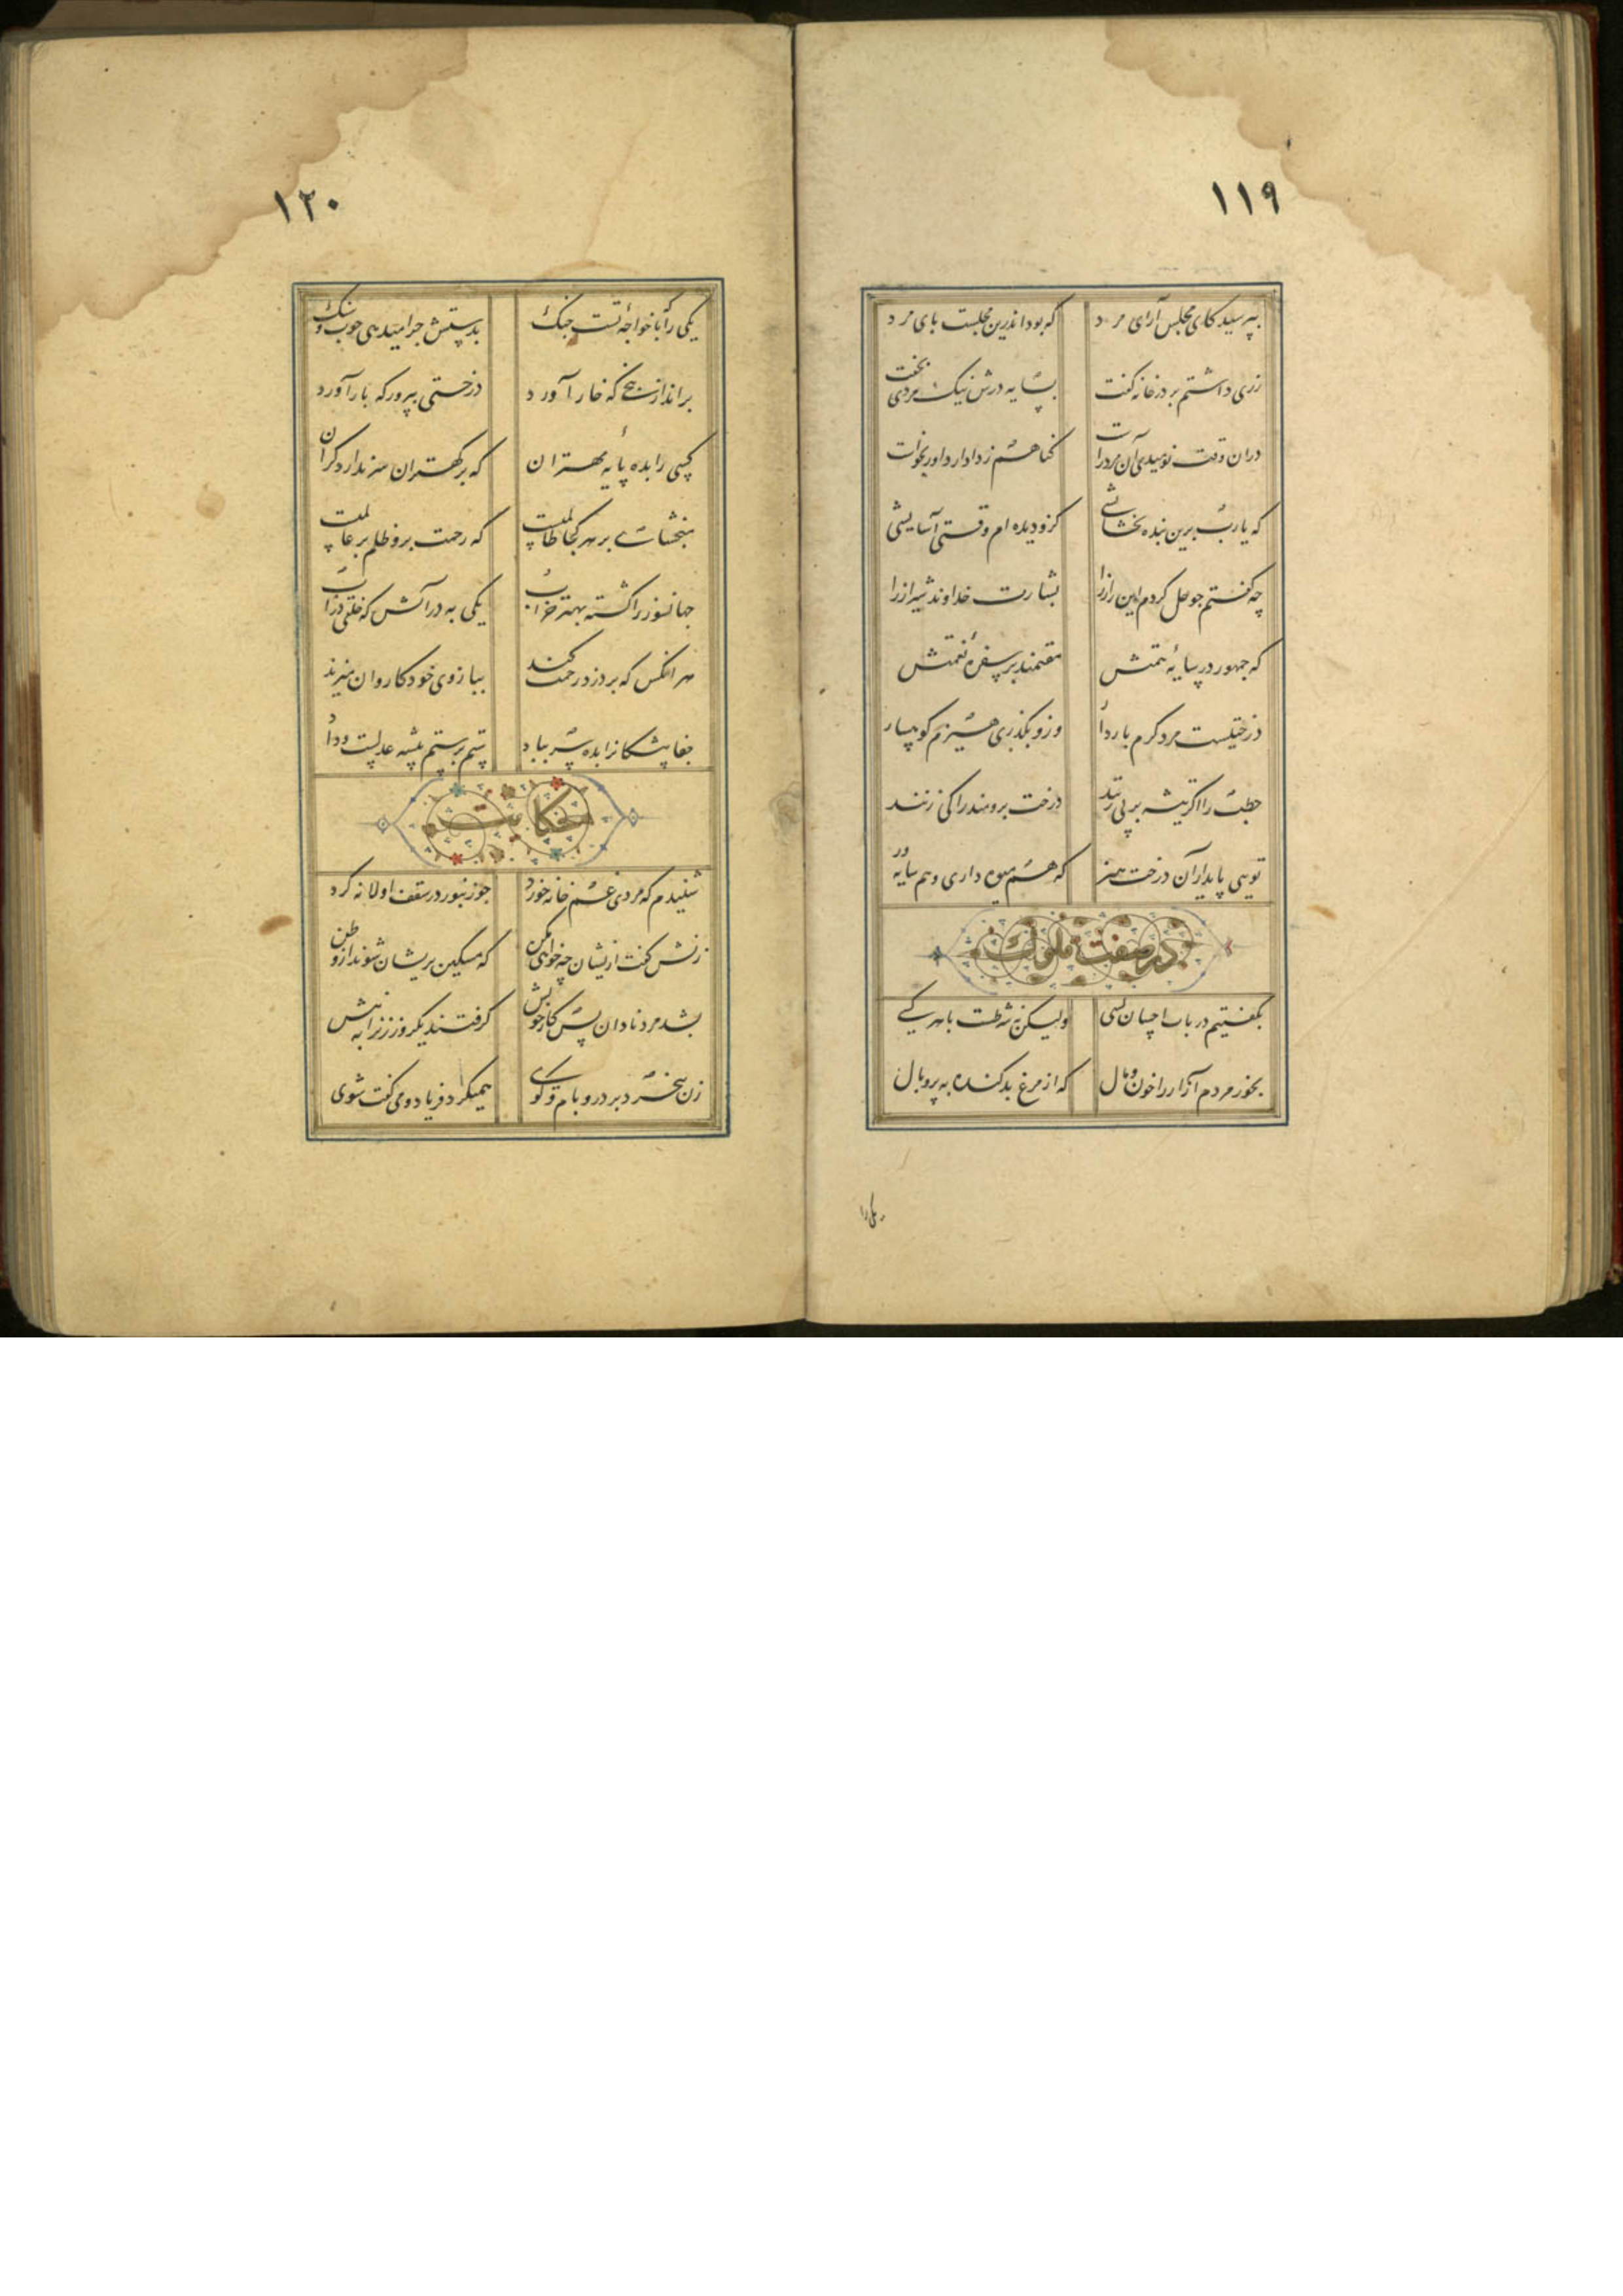 ۱۱۹
بپرسید کای مجلس آرای مرد که بود اندرین مجلست پای مرد
رزی داشتم بر در خانه گفت بسایه درش نیک مردی بخفت
دران وقت نومیدی آن مرد راست گناهم ز دادار داور بخواست
که یارب برین بنده بخشایشی کزو دیده ام وقتی آسایشی
چه گفتم جو حل کردم این راز را بشارت خداوند شیراز را
که جمهور در سایه همتش مقیمند بر سفره نعمتش
درختیست مرد کرم باردار وزو بگذری هیزم کوهسار
حطب را اگر تیشه بر پی زنند درخت برومند را کی زنند
تویی پایدار آن درخت هنر که هم میوه داری و هم سایه ور
در صفت ملوک
بگفتیم در باب احسان بسی ولیکن نه شرطست با هر کسی
بخور مردم آزار را خون و مال که از مرغ بد کنده به پر و بال
یکی را
۱۲۰
یکی را که با خواجه تست جنک بدستش چرا میدهی چوب و سنک
برانداز بیخی که خار آورد درختی بپرور که بار آورد
کسی را بده پایه مهتران که بر کهتران سر ندارد کران
مبخشای بر هر کجا ظالمیست که رحمت برو ظلم بر عالمیست
جهانسوز را کشته بهتر چراغ یکی به در آتش که خلقی
هر انکس که بر دزد رحمت کند ببازوی خود کاروان میزند
جفا پیشکانرا بده سر بباد ستم بر ستم پیشه عدلست و داد
حکایت
شنیدم که مردی غم خانه خورد جو زنبور در سقف او لانه کرد
زنش کفت ازیشان چه خواهی مکن که مسکین پریشان شوند از وطن
بشد مرد نادان پس کار خویش گرفتند یکروز زنرا به نیش
زن بیخرد بر در و بام و کوی همیکرد فریاد و می کفت شوی